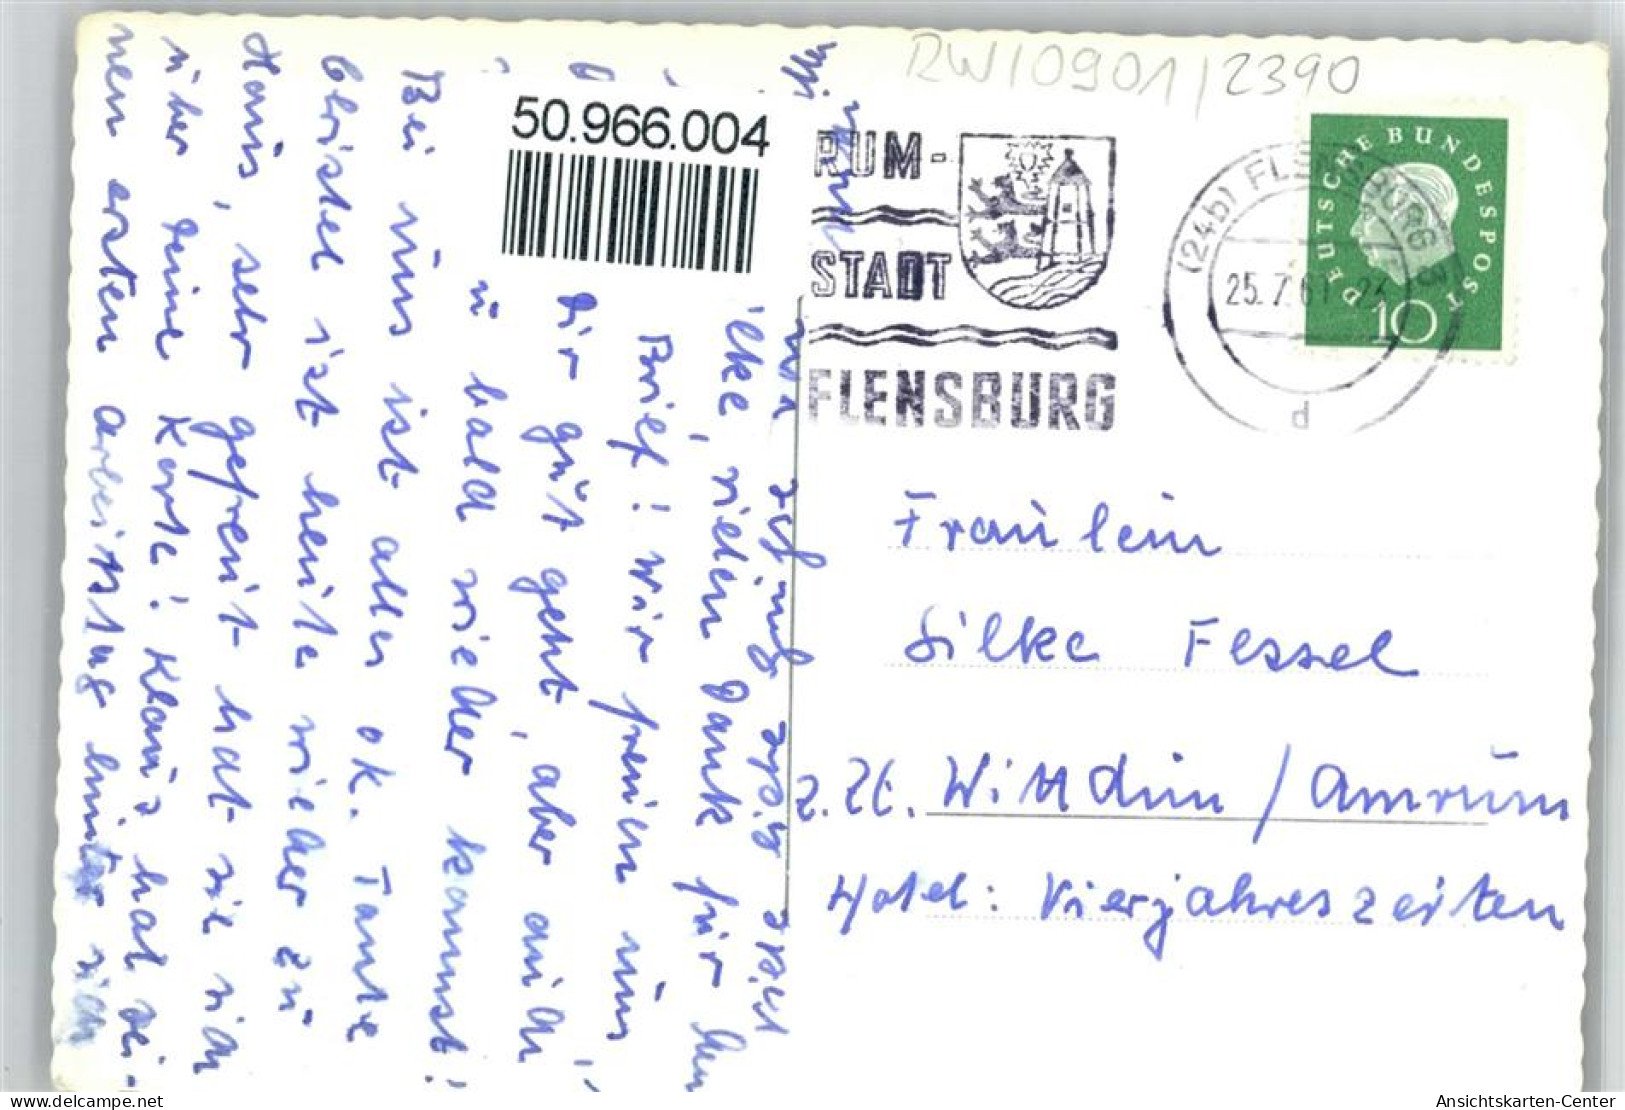 RW10901/2390
50.966.004
RUM-
STADT
FLENSBURG
(24b) FLENSBURG
25.7.61
d
DEUTSCHE BUNDESPOST
10
Fräulein
Silke Fessel
z.Zt. Wittdün / Amrum
Hotel: Vierjahreszeiten
ilke, vielen Dank für
Brief! Wir freuen uns
Dir gut geht, aber auch
u bald wieder kommst!
Bei uns ist alles ok. Tante
Christel ist heute wieder zu
Haus, sehr gefreut hat sie sich
über Deine Karte! Klaus hat sei-
nen ersten Arbeitstag hinter sich